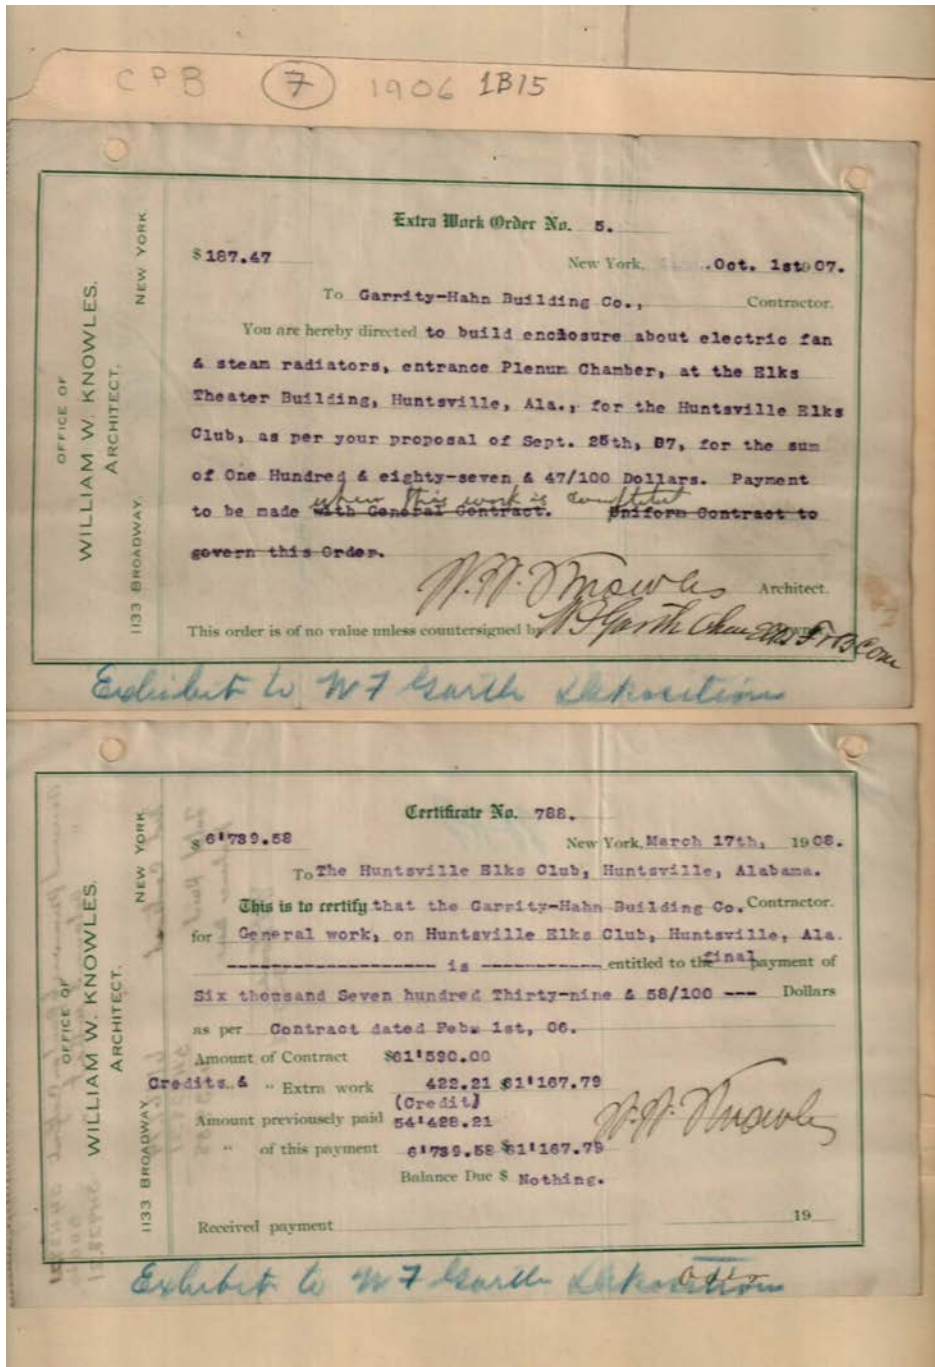 CPB 7 1906 1B15
OFFICE OF
WILLIAM W. KNOWLES.
ARCHITECT.
1133 BROADWAY. NEW YORK.
Extra Work Order No. 5.
$187.47 New York, Oct. 1st 07.
To Garrity-Hahn Building Co., Contractor.
You are hereby directed to build enclosure about electric fan
& steam radiators, entrance Plenum Chamber, at the Elks
Theater Building, Huntsville, Ala., for the Huntsville Elks
Club, as per your proposal of Sept. 25th, 07, for the sum
of One Hundred & eighty-seven & 47/100 Dollars. Payment
when this work is
to be made with General Contract. Uniform Contract to
govern this Order.
W. W. Knowles Architect.
This order is of no value unless countersigned by W F Garth
Exhibit to W F Garth Deposition
OFFICE OF
WILLIAM W. KNOWLES.
ARCHITECT.
1133 BROADWAY NEW YORK.
Certificate No. 788.
$ 6'739.58 New York, March 17th, 1908.
To The Huntsville Elks Club, Huntsville, Alabama.
This is to certify that the Garrity-Hahn Building Co. Contractor.
for General work, on Huntsville Elks Club, Huntsville, Ala.
------------------- is ----------- entitled to the final payment of
Six thousand Seven hundred Thirty-nine & 58/100 --- Dollars
as per Contract dated Feb. 1st, 06.
Amount of Contract $61'590.00
Credits & " Extra work 422.21 $61'167.79
(Credit)
Amount previousely paid 54'428.21
" of this payment 6'739.58 $61'167.79
W. W. Knowles
Balance Due $ Nothing.
Received payment 19
Exhibit to W F Garth Deposition